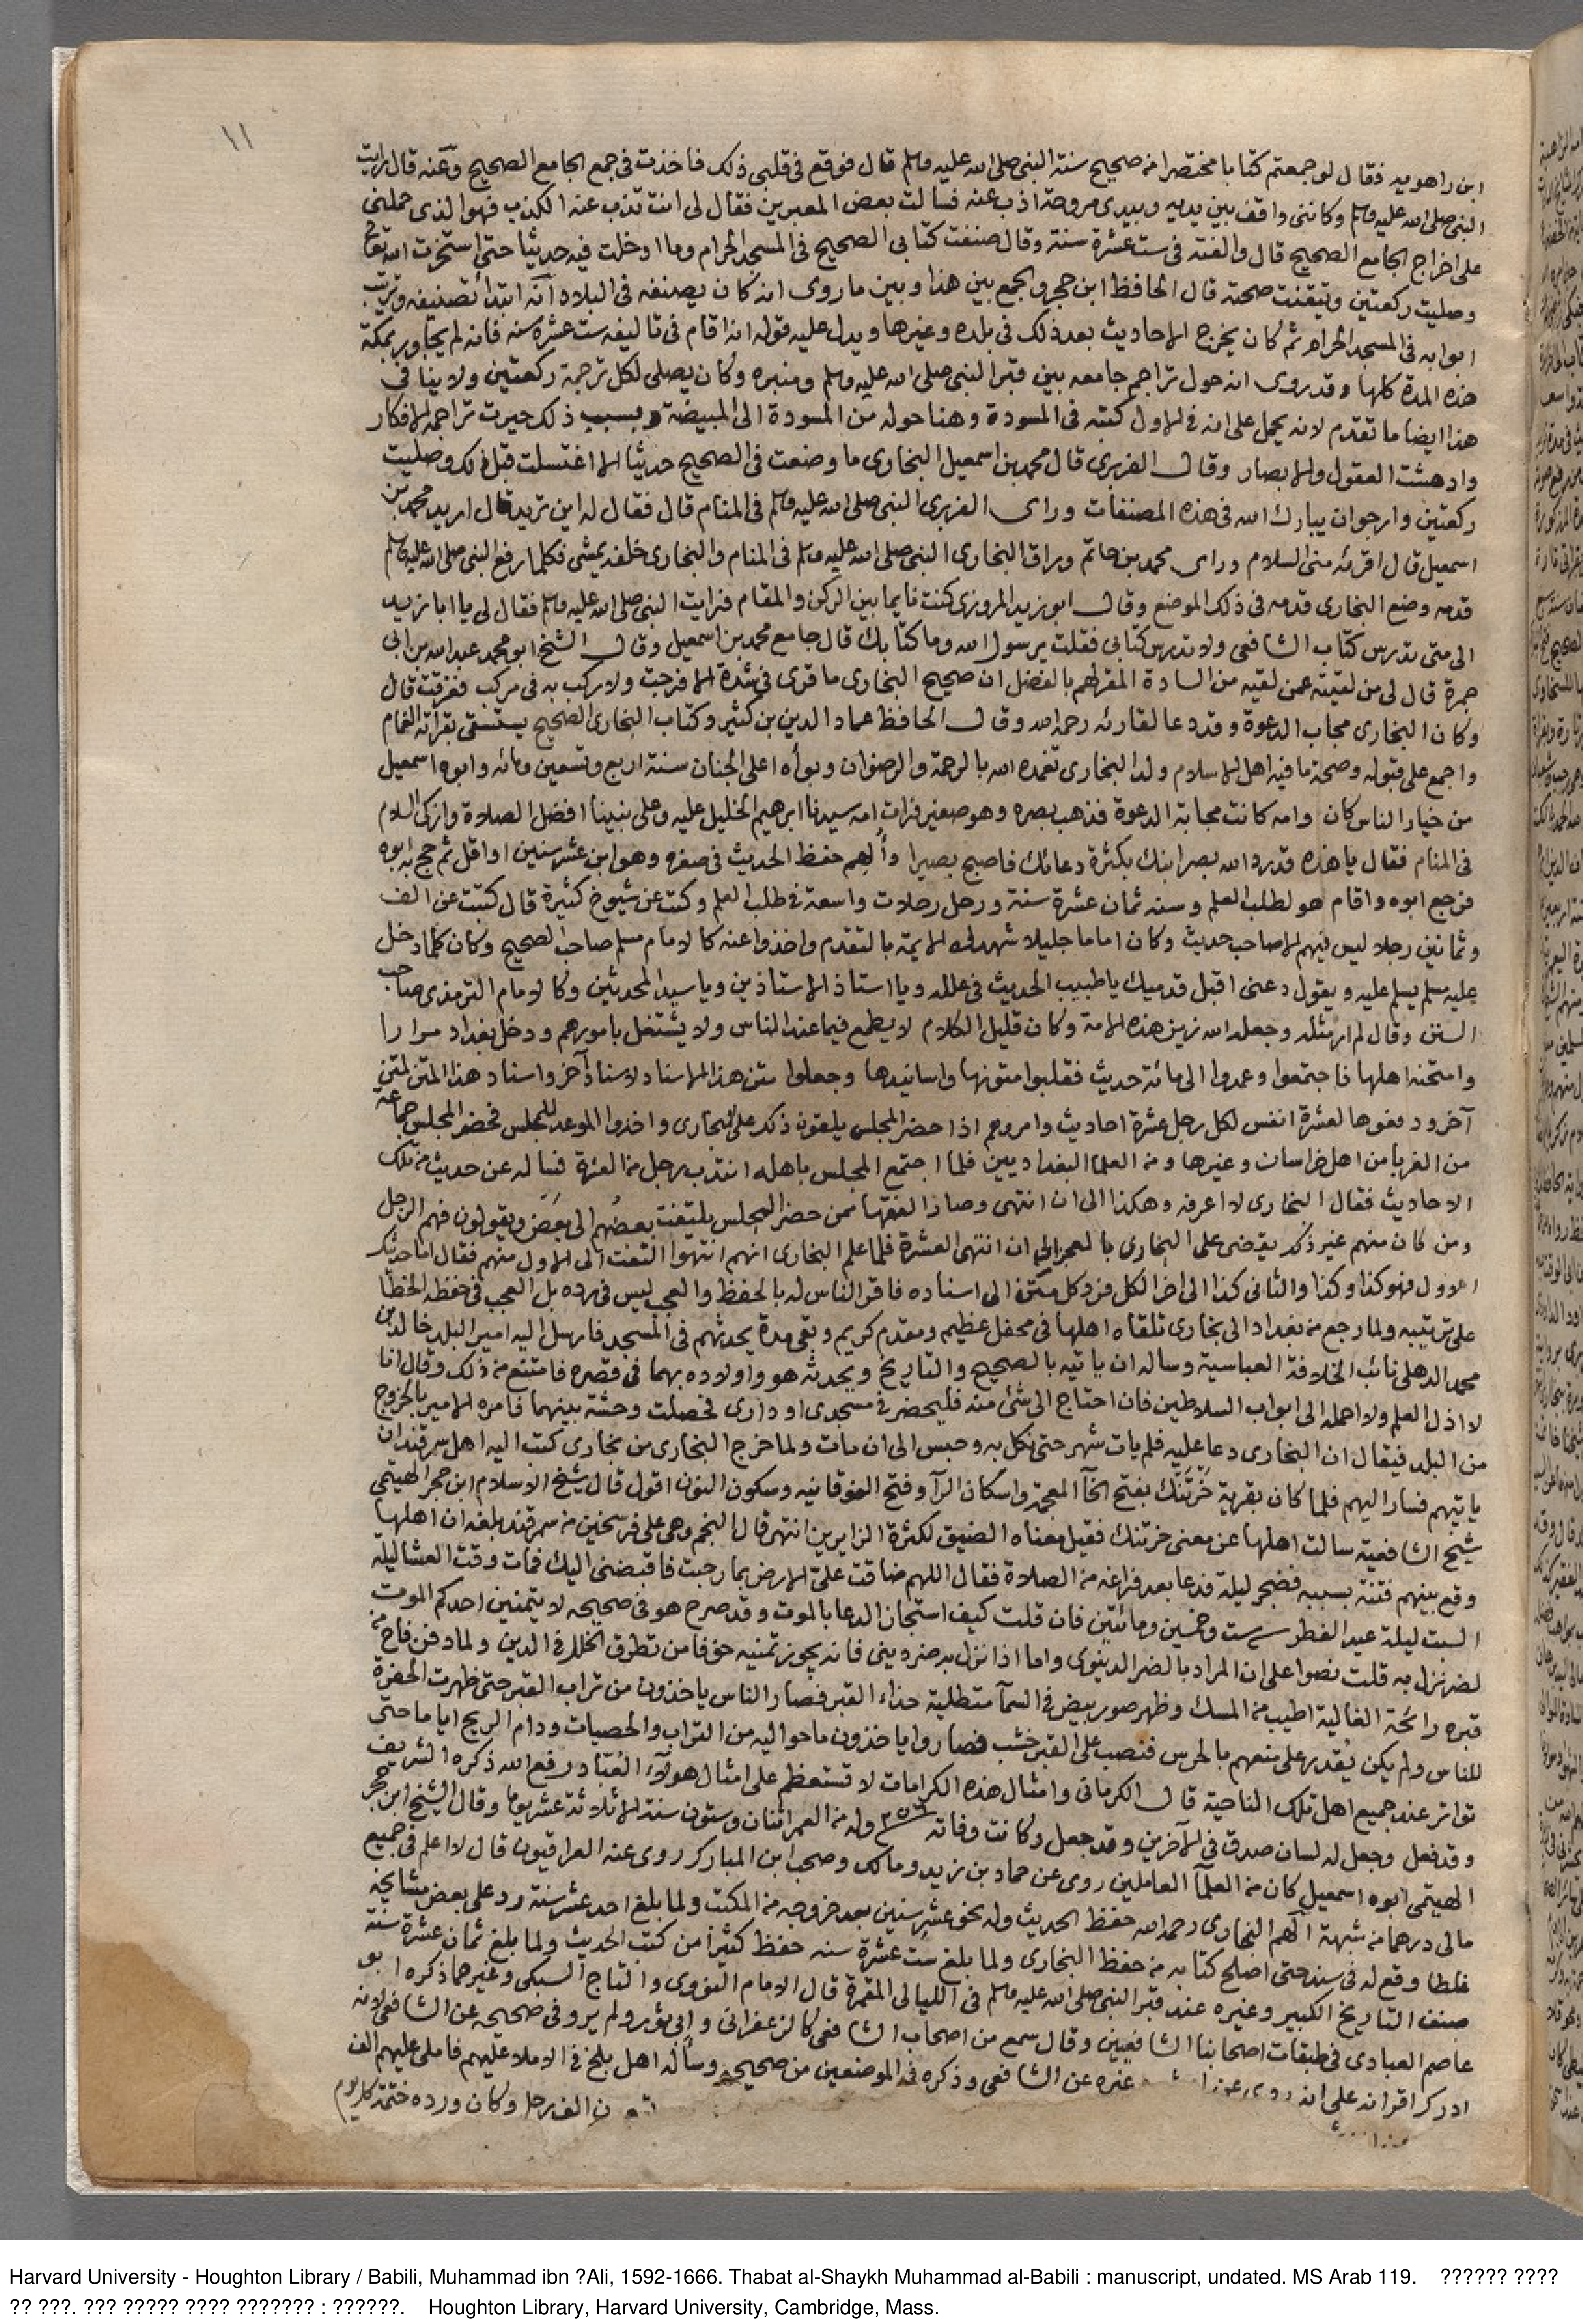 ١١
ابن راهويه فقال لو جمعتم كتابا مختصرا من صحيح سنة النبي صلى الله عليه وسلم قال فوقع في قلبي ذلك فاخذت في جمع الجامع الصحيح وعنه قال رايت
النبي صلى الله عليه وسلم وكانني واقف بين يديه وبيدي مروحة اذب عنه فسالت بعض المعبرين فقال لي انت تذب عنه الكذب فهو الذي حملني
على اخراج الجامع الصحيح قال والفته في ست عشرة سنة وقال صنفت كتابي الصحيح في المسجد الحرام وما ادخلت فيه حديثا حتى استخرت الله تعالى
وصليت ركعتين وتيقنت صحته قال الحافظ ابن حجر والجمع بين هذا وبين ما روى انه كان يصنفه في البلاد انه ابتدأ تصنيفه وترتيب
ابوابه في المسجد الحرام ثم كان يخرج الاحاديث بعد ذلك في بلده وغيرها ويدل عليه قوله انه اقام في تاليفه ست عشره سنه فانه لم يجاور بمكة
هذه المدة كلها وقد روى انه حول تراجم جامعه بين قبر النبي صلى الله عليه وسلم ومنبره وكان يصلى لكل ترجمة ركعتين ولا ينافي
هذا ايضا ما تقدم لانه يحمل على انه في الاول كتبه في المسودة وهنا حوله من المسودة الى المبيضة وبسبب ذلك حيرت تراجمه الافكار
وادهشت العقول والابصار وقال الفربرى قال محمد بن اسمعيل البخارى ما وضعت في الصحيح حديثا الا اغتسلت قبل ذلك وصليت
ركعتين وارجو ان يبارك الله في هذه المصنفات وراى الفربرى النبي صلى الله عليه وسلم في المنام قال فقال له اين تريد قال اريد محمد بن
اسمعيل قال اقرئه مني السلام وراى محمد بن حاتم وراق البخارى النبي صلى الله عليه وسلم في المنام والبخارى خلفه يمشي فكلما رفع النبي صلى الله عليه وسلم
قدمه وضع البخارى قدمه في ذلك الموضع وقال ابو زيد المروزى كنت نايما بين الركن والمقام فرايت النبي صلى الله عليه وسلم فقال لي يا ابا زيد
الى متى تدرس كتاب الشافعي ولا تدرس كتابي فقلت يرسول الله وما كتابك قال جامع محمد بن اسمعيل وقال الشيخ ابو محمد عبد الله بن ابي
جمرة قال لي من لقيته عمن لقيه من السادة المقر لهم بالفضل ان صحيح البخارى ما قرى في شدة الا فرجت ولا ركب به في مركب فغرقت قال
وكان البخارى مجاب الدعوة وقد دعا لقارئه رحمه الله وقال الحافظ عماد الدين بن كثير وكتاب البخارى الصحيح يستسقى بقراته الغمام
واجمع على قبوله وصحة ما فيه اهل الاسلام ولد البخارى تغمده الله بالرحمة والرضوان وبوأه اعلى الجنان سنة اربع وتسعين ومائه وابوه اسمعيل
من خيار الناس كان وامه كانت مجابة الدعوة فذهب بصره وهو صغير فرات امه سيدنا ابرهيم الخليل عليه وعلى نبينا افضل الصلاة وازكى السلام
في المنام فقال يا هذه قد رد الله بصر ابنك بكثرة دعائك فاصبح بصيرا وألهم حفظ الحديث في صغره وهو ابن عشر سنين او اقل ثم حج به ابوه
فرجع ابوه واقام هو لطلب العلم وسنه ثمان عشرة سنة ورحل رحلات واسعة في طلب العلم وكتب عن شيوخ كثيرة قال كتبت عن الف
وثمانين رجلا ليس فيهم الا صاحب حديث وكان اماما جليلا شهد له الايمة بالتقدم واخذوا عنه كالامام مسلم صاحب الصحيح وكان كلما دخل
عليه مسلم يسلم عليه ويقول دعني اقبل قدميك يا طبيب الحديث في علله ويا استاذ الاستاذين ويا سيد المحدثين وكالامام الترمذى صاحب
السنن وقال لم ار مثله وجعله الله زين هذه الامة وكان قليل الكلام لا يطمع فيما عند الناس ولا يشتغل بامورهم ودخل بغداد مرارا
وامتحنه اهلها فاجتمعوا وعمدوا الى مائة حديث فقلبوا متونها واسانيدها وجعلوا متن هذا الاسناد لاسناد آخر واسناد هذا المتن لمتن
آخر ودفعوها لعشرة انفس لكل رجل عشرة احاديث وامروهم اذا حضر المجلس يلقون ذلك على البخارى واخذوا الموعد للمجلس فحضر المجلس جماعة
من الغربا من اهل خراسان وغيرها ومن العلما البغداديين فلما اجتمع المجلس باهله انتدب رجل من العشرة فساله عن حديث من تلك
الاحاديث فقال البخارى لا اعرفه وهكذا الى ان انتهى وصار الفقها ممن حضر المجلس يلتفت بعضهم الى بعض ويقولون فهم الرجل
ومن كان منهم غير ذلك يقضى على البخارى بالعجز الى ان انتهى العشرة فلما علم البخارى انهم انتهوا التفت الى الاول منهم فقال اما حديثك
الاول فهو كذا وكذا والثاني كذا الى اخر الكل فرد كل متن الى اسناده فاقر الناس له بالحفظ والعجب ليس في رده بل العجب في حفظه الخطأ
على ترتيبه ولما رجع من بغداد الى بخارى تلقاه اهلها في محفل عظيم ومقدم كريم وبقى مدة يحدثهم في المسجد فارسل اليه امير البلد خالد بن
محمد الدهلى نائب الخلافة العباسية وساله ان ياتيه بالصحيح والتاريخ ويحدثه هو واولاده بهما في قصره فامتنع من ذلك وقال انا
لا اذل العلم ولا احمله الى ابواب السلاطين فان احتاج الى شئ منه فليحضر في مسجدى او دارى فحصلت وحشة بينهما فامره الامير بالخروج
من البلد فيقال ان البخارى دعا عليه فلم يات شهر حتى نكل به وحبس الى ان مات ولما خرج البخارى من بخارى كتب اليه اهل سمرقند ان
ياتيهم فسار اليهم فلما كان بقرية خَرْتَنْك بفتح الخآ المعجمة واسكان الرآ وفتح الفوقانيه وسكون النون اقول قال شيخ الاسلام ابن حجر الهيتمي
شيخ الشافعية سالت اهلها عن معنى خرتنك فقيل معناه الضيق لكثرة الزايرين انتهى قال النجم وهى على فرسخين من سمرقند بلغه ان اهلها
وقع بينهم فتنة بسببه فضجر ليلة فدعا بعد فراغه من الصلاة فقال اللهم ضاقت على الارض بما رحبت فاقبضني اليك فمات وقت العشا ليلة
السبت ليلة عيد الفطر سنة ست وخمسين ومائتين فان قلت كيف استجاز الدعا بالموت وقد صرح هو في صحيحه لا يتمنين احدكم الموت
لضر نزل به قلت نصوا على ان المراد بالضر الدنيوى واما اذا نزل به ضر ديني فانه يجوز تمنيه خوفا من تطرق الخلل في الدين ولما دفن فاح من
قبره رائحة الغالية اطيب من المسك وظهر صور بيض في السمآ مستطيلة حذاء القبر فصار الناس ياخذون من تراب القبر حتى ظهرت الحفرة
للناس ولم يكن يُقدر على منعهم بالحرس فنصب على القبر خشب فصاروا ياخذون ما حواليه من التراب والحصيات ودام الريح اياما حتى
تواتر عند جميع اهل تلك الناحية قال الكرماني وامثال هذه الكرامات لا تستعظم على امثال هولآء العُبّاد رفع الله ذكره الشريف
وقد فعل وجعل له لسان صدق في الآخرين وقد جعل وكانت وفاته ٢٥٦ وله من العمر اثنان وستون سنة الا ثلاثة عشر يوما وقال الشيخ ابن حجر
الهيتمي ابوه اسمعيل كان من العلمآ العاملين روى عن حماد بن زيد ومالك وصحب ابن المبارك روى عنه العراقيون قال لا اعلم في جميع
مالى درهما من شبهة ألهم البخارى رحمه الله حفظ الحديث وله نحو عشر سنين بعد خروجه من المكتب ولما بلغ احد عشر سنة رد على بعض مشايخه
غلطا وقع له في سند حتى اصلح كتابه من حفظ البخارى ولما بلغ ست عشرة سنه حفظ كثيرا من كتب الحديث ولما بلغ ثمان عشرة سنة
صنف التاريخ الكبير وغيره عند قبر النبي صلى الله عليه وسلم في الليالى المقمرة قال الامام النووى والتاج السبكى وغيرهما ذكره ابو
عاصم العبادى في طبقات اصحابنا الشافعيين وقال سمع من اصحاب الشافعي كالزعفراني وابي ثور ولم يرو في صحيحه عن الشافعي لانه
ادرك اقرانه على انه روى عن غيره عن الشافعي وذكره في الموضعين من صحيحه وسأله اهل بلخ في الاملا عليهم فاملى عليهم الف
عن الف رجل وكان ورده ختمة كل يوم